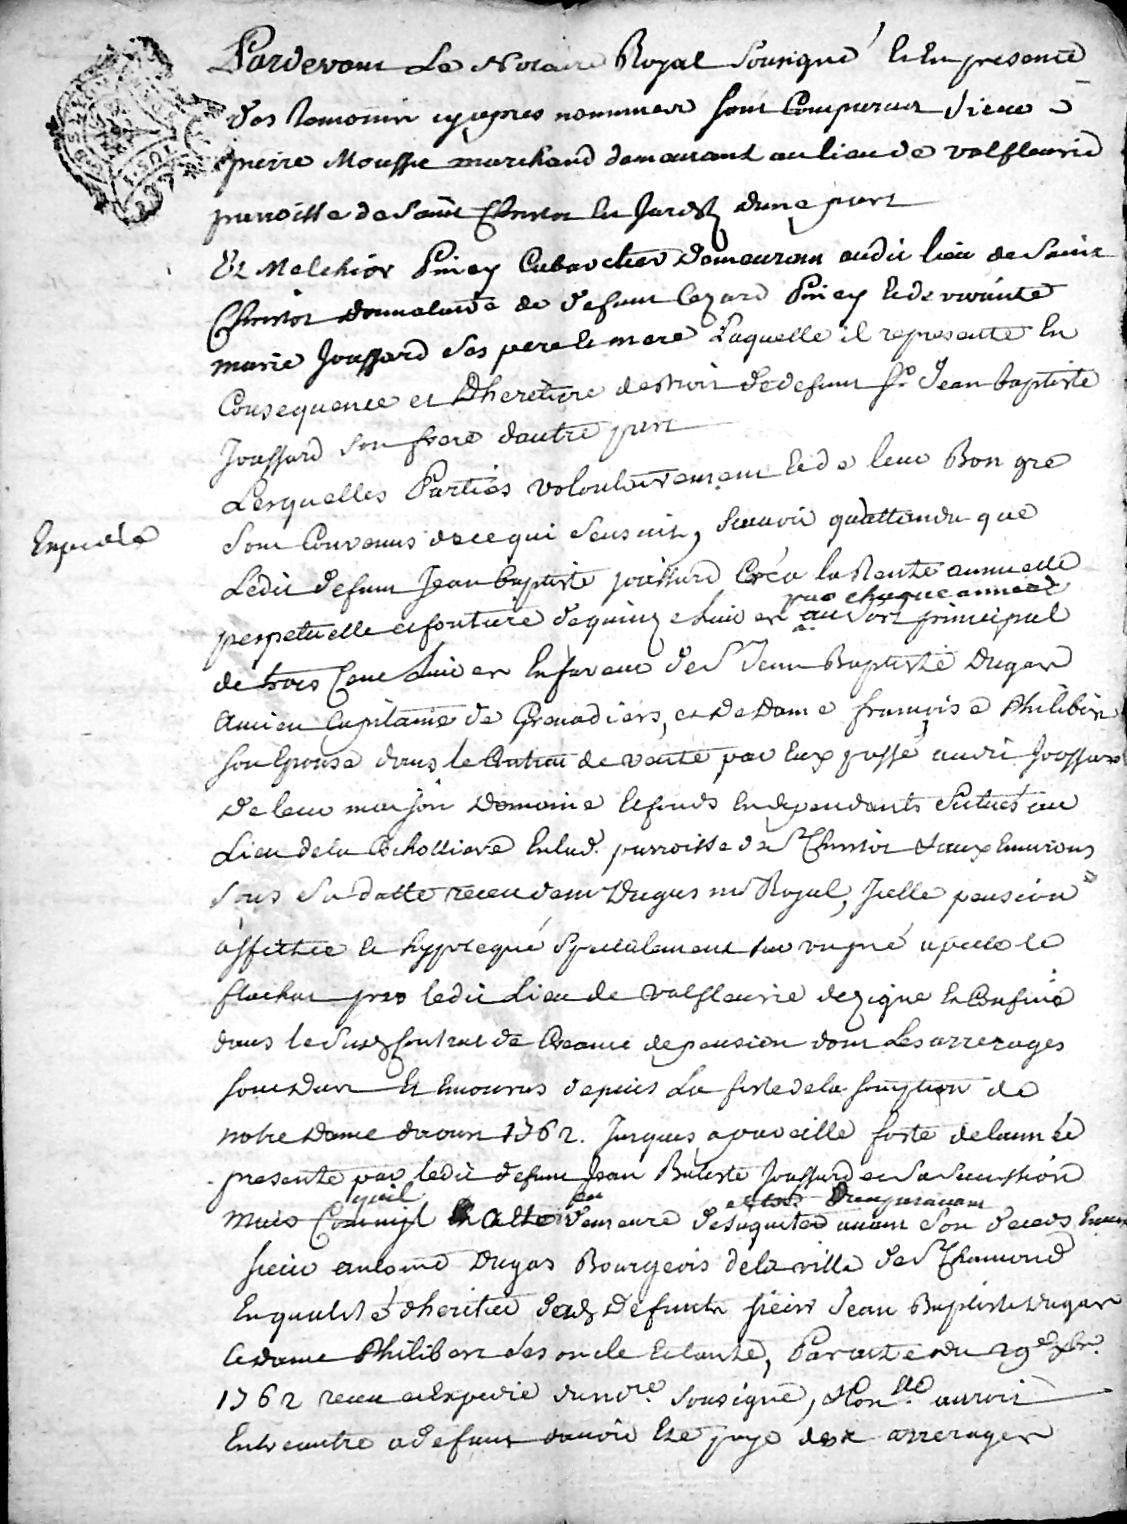 Pardevant Le Notaire Royal Sousigné Et En presence
des temoins cy apres nommes sont Comparus Sieur
pierre Mousse marchand demeurant au lieu de valfleurie
parroisse de Saint Christot En Jarest dune part
Et Melchior Piney Cabaretier demeurant audit lieu de Saint
Christot donnataire de defunt Cezard Piney Et de vivante
marie Joussard Ses pere Et mere Laquelle il represente En
Consequence et Dheretiere de droit de defunt Sr. Jean baptiste
Joussard Son frere dautre part
Lesquelles Parties volontairement Et de leur Bon gré
Sont Convenus de ce qui Sensuit, Scavoir quattendu que
Expedié
Ledit defunt Jean baptiste joussard Créa la Rente annuelle
par chaque année
perpetuelle et fonciere de quinze Livres au Sort principal
de trois Cent Livres En faveur de Sr Jean Baptiste Dugas
Ancien Capitaine de Grenadiers, et de Dame francoise Philibert
Son Epouse dans le Contrat de vente par Eux passé audit Joussard
De leur maison Domaine Et fonds En dependants Situés au
Lieu de la Cholliere En lad. parroisse de St Christot & aux Environs
Sous Sa datte receu dem Dugas nre Royal, Icelle pension
affectée Et hypotequé Specialement Sur vigne apellé le
flachat pres ledit Lieu de valfleurie dezigné Et Confiné
dans le Susd Contrat de Creance de pension dont Les arrerages
Sont Dus Et Encourus depuis La feste de la Somption de
notre Dame daoust 1762. Jusques a pareille feste de lannée
presente par ledit defunt Jean Batiste Joussard et Sa Succession
quil en auparavant
Mais Comme il demeure de Saquiter avant Son deceds Envers
Sieur antoine Dugas Bourgeois de la ville de St Chamond
En qualité dheritier desd Defunts Sieur Jean Baptiste Dugas
Et dame Philibert Ses oncle Et tante, Par acte du 29e xbre.
1762 receu et Expedié du nore. Sousigné, auroit
Entre autre a defaut davoir Eté payé des arrerages